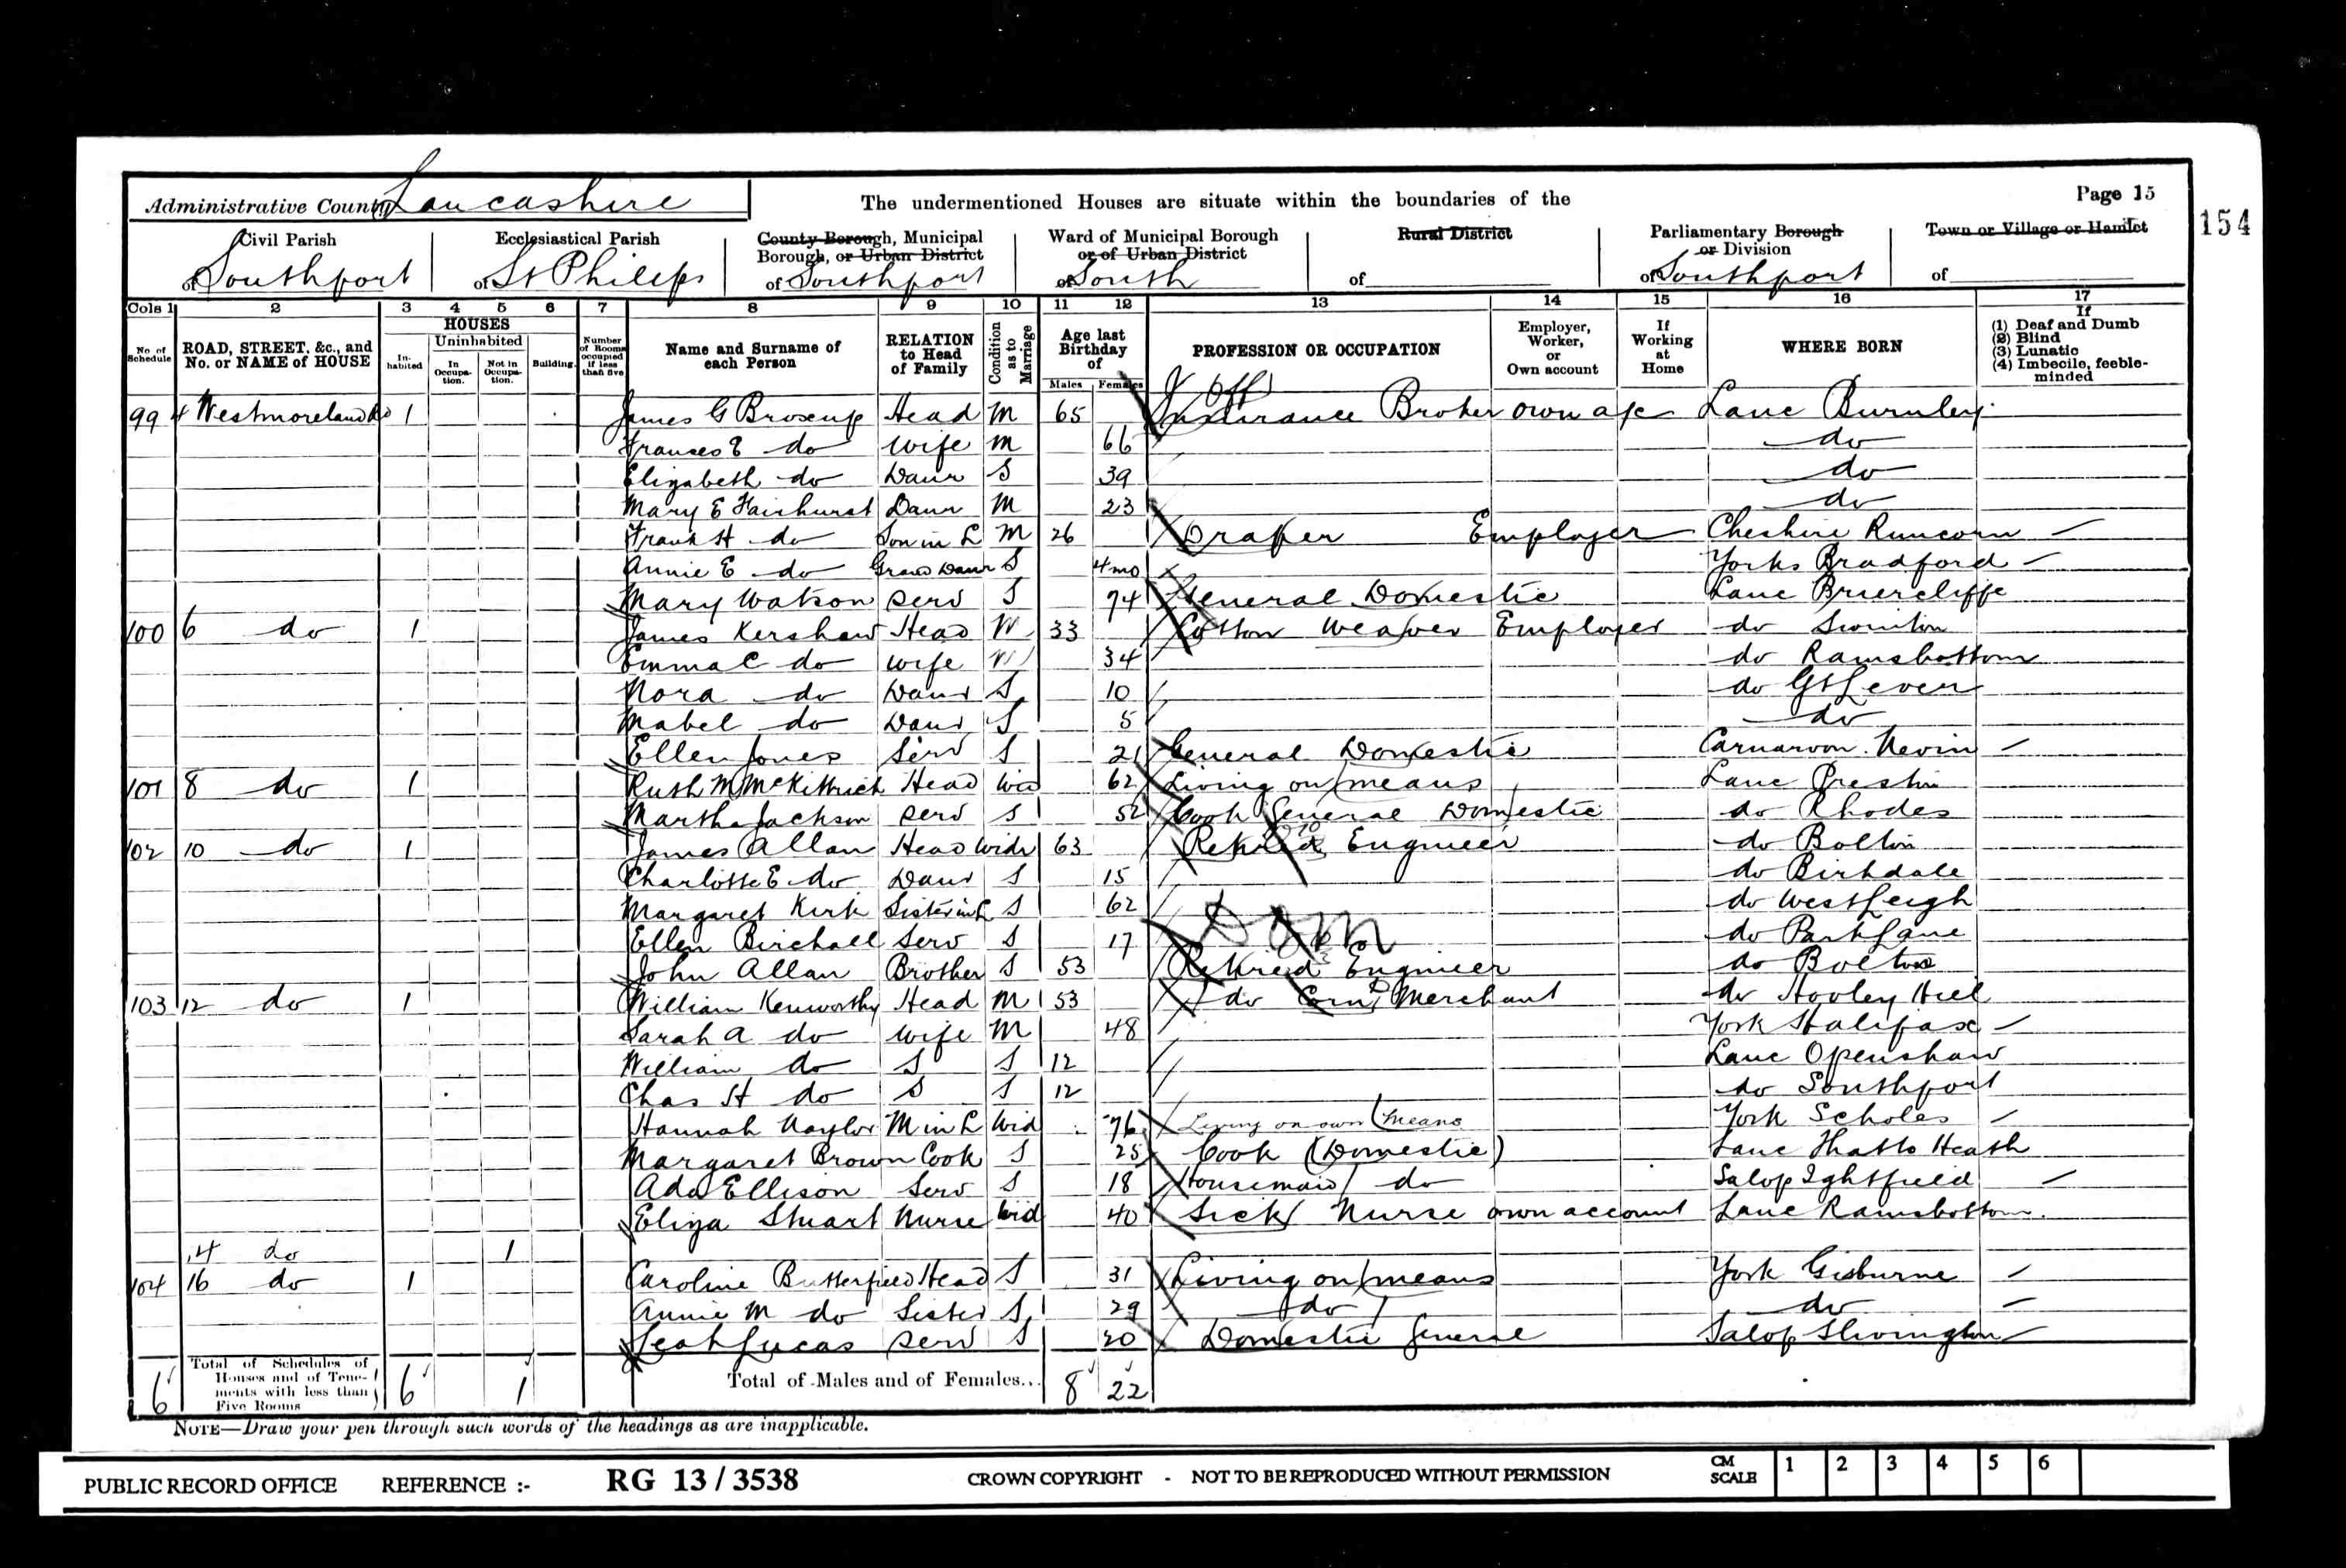 Administrative County Lancashire
The undermentioned Houses are situate within the boundaries of the
Page 15
154
Civil Parish of Southport
Ecclesiastical Parish of St Philips
County Borough, Municipal Borough, or Urban District of Southport
Ward of Municipal Borough or of Urban District of South
Rural District of
Parliamentary Borough or Division of Southport
Town or Village or Hamlet of
Cols 1 2 3 4 5 6 7 8 9 10 11 12 13 14 15 16 17
No. of Schedule
ROAD, STREET, &c., and No. or NAME of HOUSE
HOUSES
Inhabited
Uninhabited
In Occupation.
Not in Occupation.
Building.
Number of Rooms occupied if less than five
Name and Surname of each Person
RELATION to Head of Family
Condition as to Marriage
Age last Birthday of
Males Females
PROFESSION OR OCCUPATION
Employer, Worker, or Own account
If Working at Home
WHERE BORN
If
(1) Deaf and Dumb
(2) Blind
(3) Lunatic
(4) Imbecile, feeble-minded
Off
99 4 Westmoreland Rd 1 James G Broxup Head M 65 Insurance Broker own a/c Lanc Burnley
Frances E do Wife M 66 do
Elizabeth do Daur S 39 do
Mary E Fairhurst Daur M 23 do
Frank H do Son in L M 26 Draper Employer Cheshire Runcorn
Annie E do Grand Daur S 4 mo Yorks Bradford
Mary Watson Serv S 74 General Domestic Lanc Briercliffe
100 6 do 1 James Kershaw Head M 33 Cotton Weaver Employer do Swinton
Emma C do Wife M 34 do Ramsbottom
Nora do Daur S 10 do Gt Lever
Mabel do Daur S 5 do
Ellen Jones Serv S 21 General Domestic Carnarvon Nevin
101 8 do 1 Ruth M McKittrick Head Wid 62 Living on means Lanc Preston
Martha Jackson Serv S 52 Cook General Domestic do Rhodes
102 10 do 1 James Allan Head Widr 63 Retired Engineer do Bolton
Charlotte E do Daur S 15 do Birkdale
Margaret Kirk Sister in L S 62 do West Leigh
Ellen Birchall Serv S 17 Dom do Park Lane
John Allan Brother S 53 Retired Engineer do Bolton
103 12 do 1 William Kenworthy Head M 53 do Corn Merchant do Hooley Hill
Sarah A do Wife M 48 York Halifax
William do S S 12 Lanc Openshaw
Chas H do S S 12 do Southport
Hannah Naylor M in L Wid 76 Living on own means York Scholes
Margaret Brown Cook S 25 Cook (Domestic) Lanc Thatto Heath
Ada Ellison Serv S 18 Housemaid do Salop Ightfield
Eliza Stuart Nurse Wid 40 Sick Nurse own account Lanc Ramsbottom
14 do 1
104 16 do 1 Caroline Butterfield Head S 31 Living on means York Gisburne
Annie M do Sister S 29 do do
Leah Lucas Serv S 20 Domestic General Salop
6 Total of Schedules of Houses and of Tenements with less than Five Rooms 6 1 Total of Males and of Females... 8 22
NOTE—Draw your pen through such words of the headings as are inapplicable.
PUBLIC RECORD OFFICE REFERENCE :- RG 13 / 3538 CROWN COPYRIGHT - NOT TO BE REPRODUCED WITHOUT PERMISSION CM SCALE 1 2 3 4 5 6